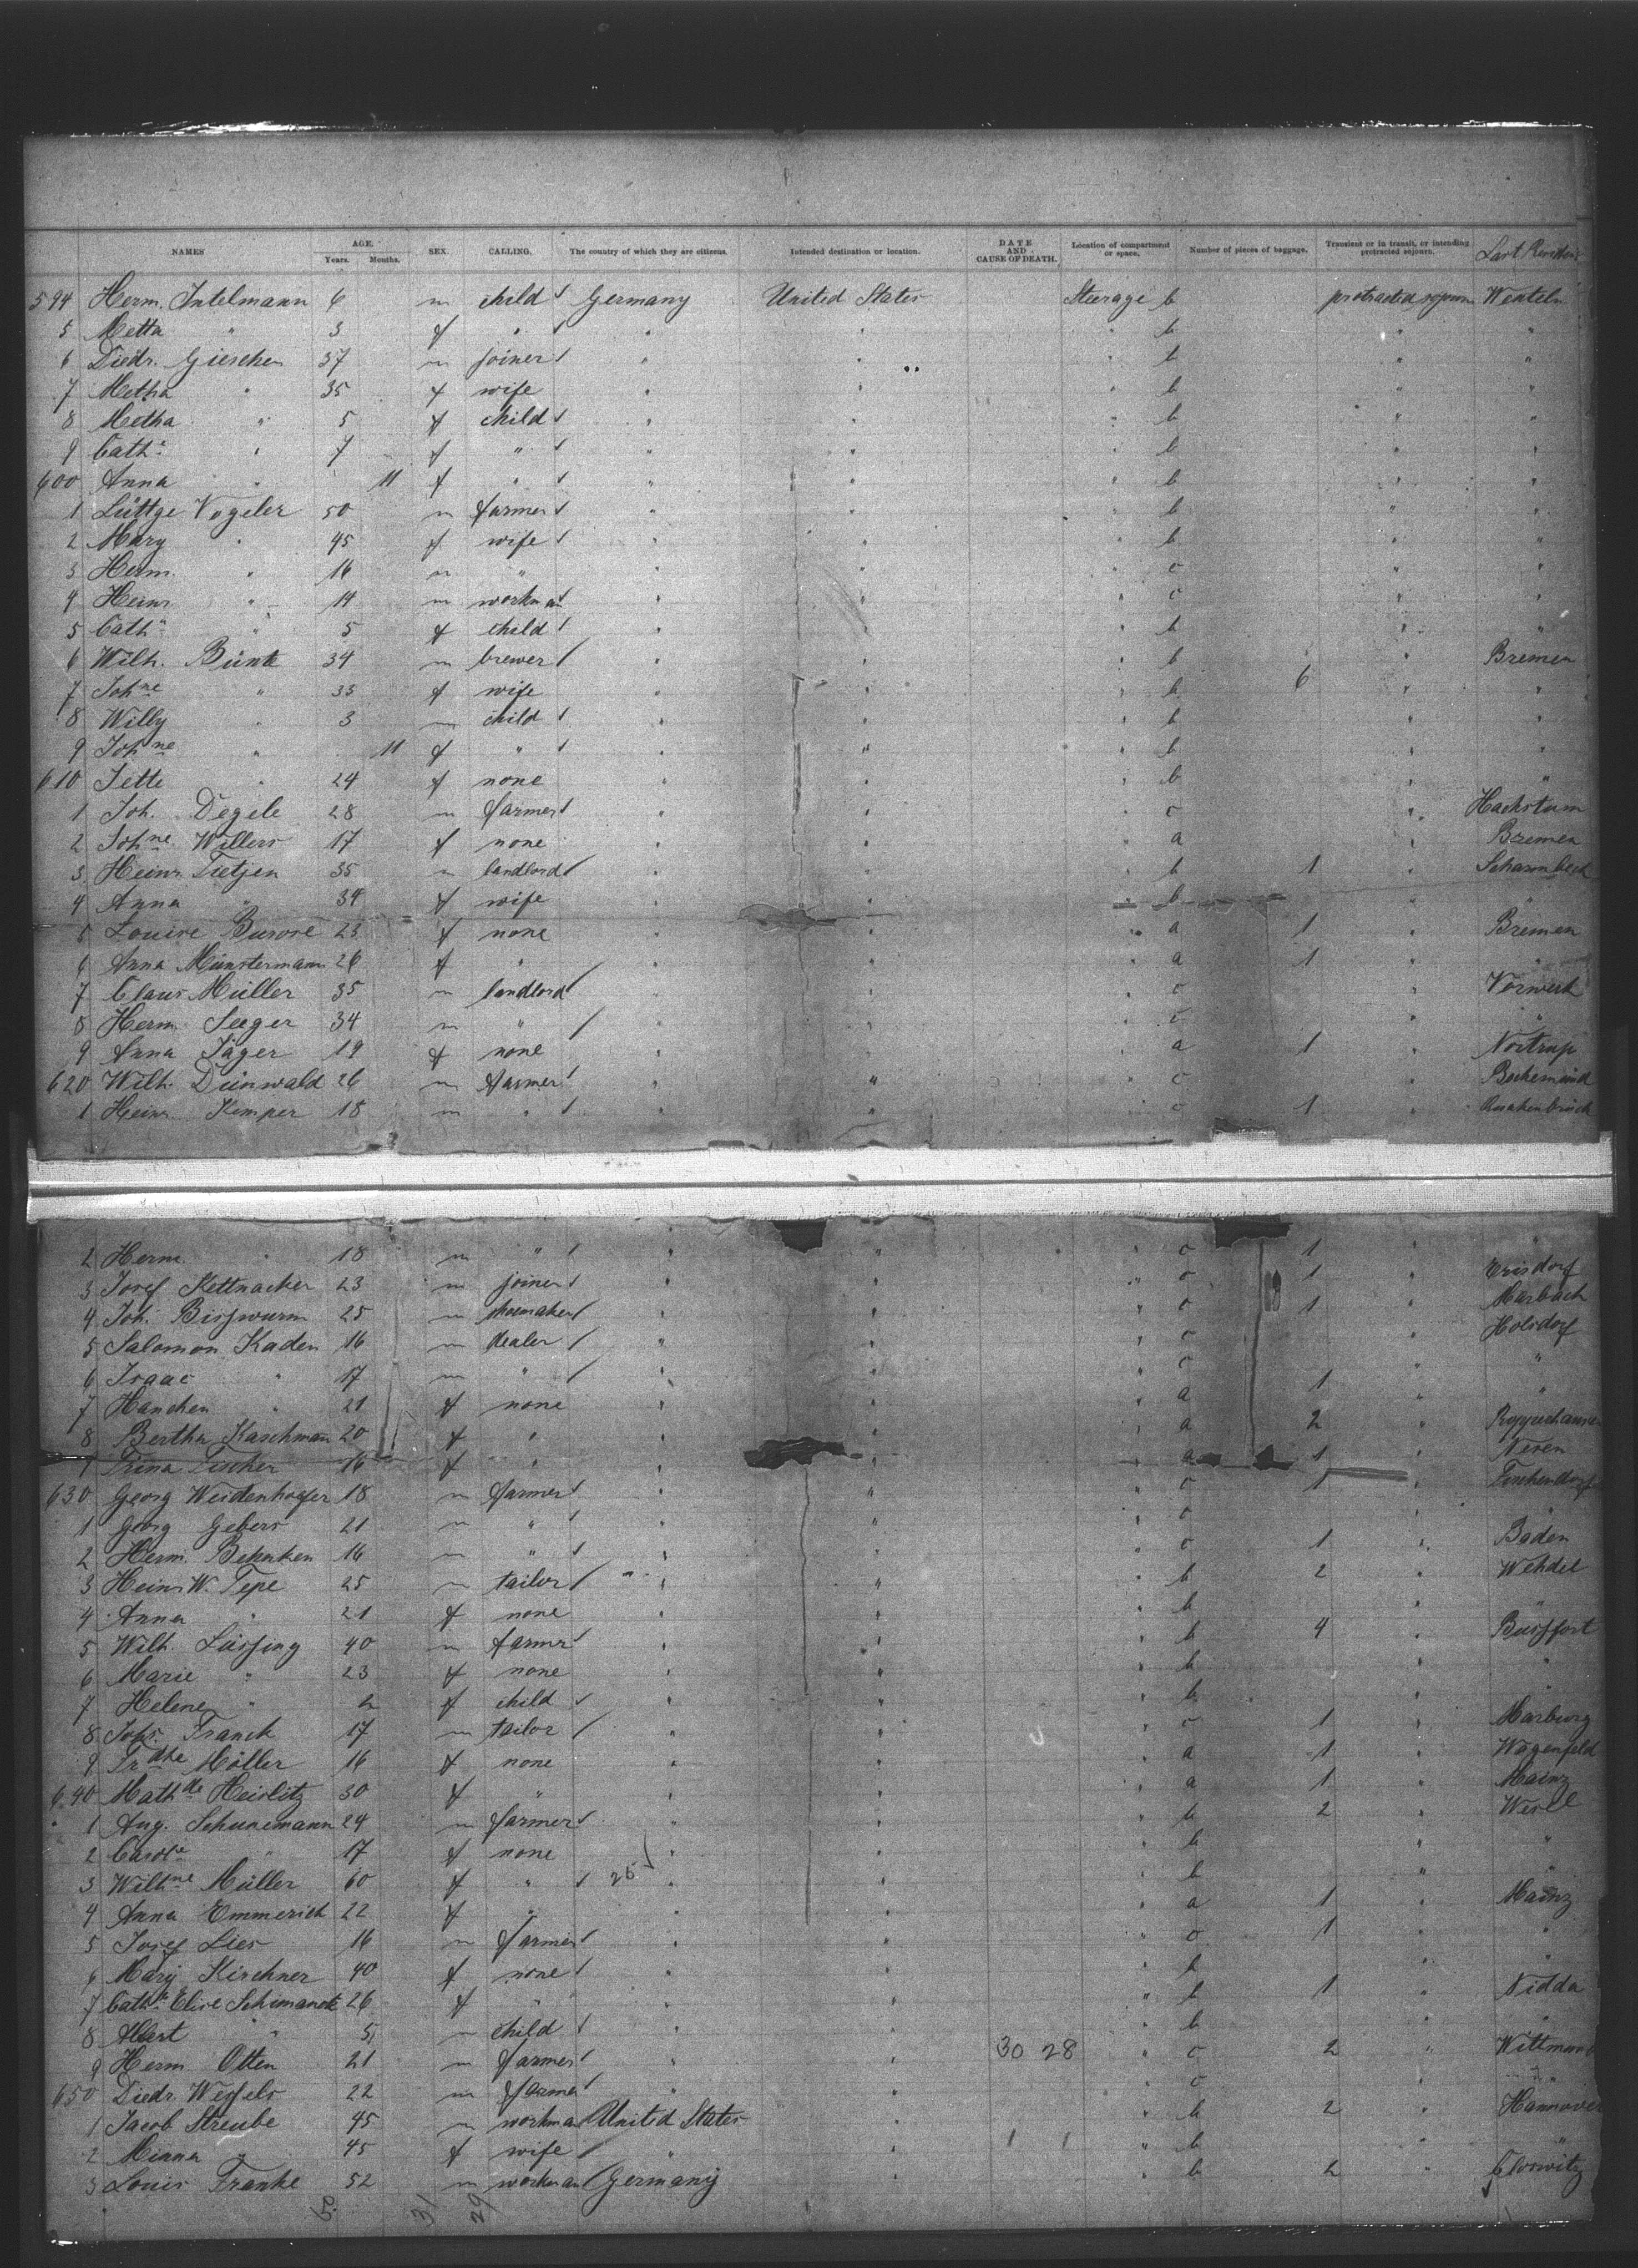 NAMES AGE. Years. Months. SEX. CALLING. The country of which they are citizens. Intended destination or location. DATE AND CAUSE OF DEATH. Location of compartment or space. Number of pieces of baggage. Transient or in transit, or intending protracted sojourn. Last
594 Herm. Intelmann 6 m child Germany United States Steerage b protracted sojourn Wenteln
5 Metta " 3 f " " " " b " "
6 Diedr. Gieschen 37 m joiner " " " b " "
7 Metha " 35 f wife " " " b " "
8 Metha " 5 f child " " " b " "
9 Cath. " 7 f " " " " b " "
600 Anna " 11 f " " " " b " "
1 Lüttge Vogeler 50 m farmer " " " b " "
2 Mary " 45 f wife " " " b " "
3 Herm. " 16 m " " " " c " "
4 Heinr. " 14 m workman " " " c " "
5 Cath. " 5 f child " " " b " "
6 Wilh. Bünte 34 m brewer " " " b " Bremen
7 Johne " 33 f wife " " " b 6 " "
8 Willy " 3 m child " " " b " "
9 Johne " 11 f " " " " b " "
610 Jette " 24 f none " " " b " "
1 Joh. Degele 28 m farmer " " " c " Hachstum
2 Johne Willers 17 f none " " " a " Bremen
3 Heinr. Tietjen 35 m landlord " " " b 1 " Scharmbeck
4 Anna " 34 f wife " " " b " "
5 Louise Busse 23 f none " " " a 1 " Bremen
6 Anna Münstermann 26 f " " " " a 1 " "
7 Claus Müller 35 m landlord " " " c " Vorwerk
8 Herm. Seeger 34 m " " " " c " "
9 Anna Jäger 19 f none " " " a 1 " Nortrup
620 Wilh. Dünwald 26 m farmer " " " c "
1 Heinr. Kemper 18 m " " " " c 1 " Quakenbrück
2 Herm. " 18 m " " " " c 1 " "
3 Josef Kettnacker 23 m joiner " " " c 1 " Erisdorf
4 Joh. Bisswurm 25 m shoemaker " " " c 1 " Marbach
5 Salomon Kaden 16 m dealer " " " c " Holsdorf
6 Isaac " 17 m " " " " c " "
7 Hanchen " 21 f none " " " a 1 " "
8 Bertha Kaschmann 20 f " " " " a 2 "
9 Trina Fischer 16 f " " " " a 1 " Neren
630 Georg Weidenhoefer 18 m farmer " " " c 1 "
1 Georg Gebers 21 m " " " " c " "
2 Herm. 16 m " " " " c 1 " Baden
3 Heinr. W. Tepe 25 m tailor " " " b 2 " Wehdel
4 Anna " 21 f none " " " b " "
5 Wilh. Lüssing 40 m farmer " " " b 4 " Büssfort
6 Marie " 23 f none " " " b " "
7 Helene " 2 f child " " " b " "
8 Johs. Franck 17 m tailor " " " c 1 " Marburg
9 Frdke Möller 16 f none " " " a 1 " Wagenfeld
640 Mathde Heislitz 30 f " " " " a 1 " Mainz
1 Aug. Schünemann 24 m farmer " " " b 2 " Wesel
2 Carole " 17 f none " " " b " "
3 Wilhne Müller 60 f " 26 " " " b " "
4 Anna Emmerich 22 f " " " " a 1 " Mainz
5 Josef Lies 16 m farmer " " " c 1 " "
6 Mary Kirchner 40 f none " " " b " "
7 Cath. Elise Schimanck 26 f " " " " b 1 " Nidda
8 Albert " 5 m child " " " b " "
9 Herm. Otten 21 m farmer " " 30 28 " c 2 " Wittmund
650 Diedr. Wessels 22 m farmer " " " c " "
1 Jacob Streube 45 m workman United States " " b 2 " Hannover
2 Minna " 45 f wife " " 1 1 " b " "
3 Louis Franke 52 m workman Germany " " b 2 " Closwitz
31 29